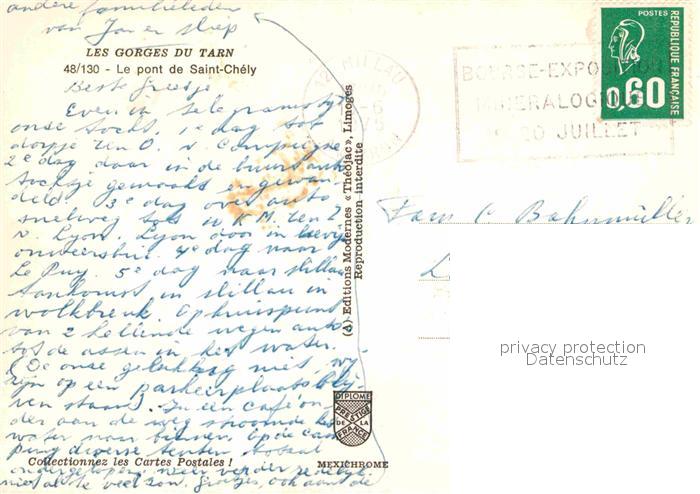 andere familieleden
van Jan en
LES GORGES DU TARN
48/130 - Le pont de Saint-Chély
Beste Greetje,
Even in telegramstijl
onze tocht. 1e dag tot
dorpje ten O. v. Compiègne
2e dag daar in de buurt
tochtje gemaakt en gewan-
deld. 3e dag over auto
snelweg tot K.M. ten Z
v. Lyon. Lyon door in hevig
onweersbui. 4e dag naar
Le Puy. 5e dag naar Millau
Aankomst in Millau in
wolkbreuk. Op kruispunt
van 2 hellende wegen auto
tot de assen in het water.
(De onze gelukkig niet, wij
zijn op een parkeerplaats blij-
ven staan). In een café on-
der aan de weg stroomde het
water naar binnen. Op de cam
ping diverse tenten totaal
ondergelopen. Weer verder redelijk
niet al te veel zon. Groetjes, ook aan de
Collectionnez les Cartes Postales !
(4) Editions Modernes «Théojac», Limoges
Reproduction interdite
DIPLOME
PRESTIGE
DE LA
FRANCE
MEXICHROME
12 MILLAU
BOURSE-EXPOSITION
MINERALOGIQUE
20 JUILLET
POSTES
REPUBLIQUE FRANÇAISE
0,60
Fam C Bahnmüller
privacy protection
Datenschutz